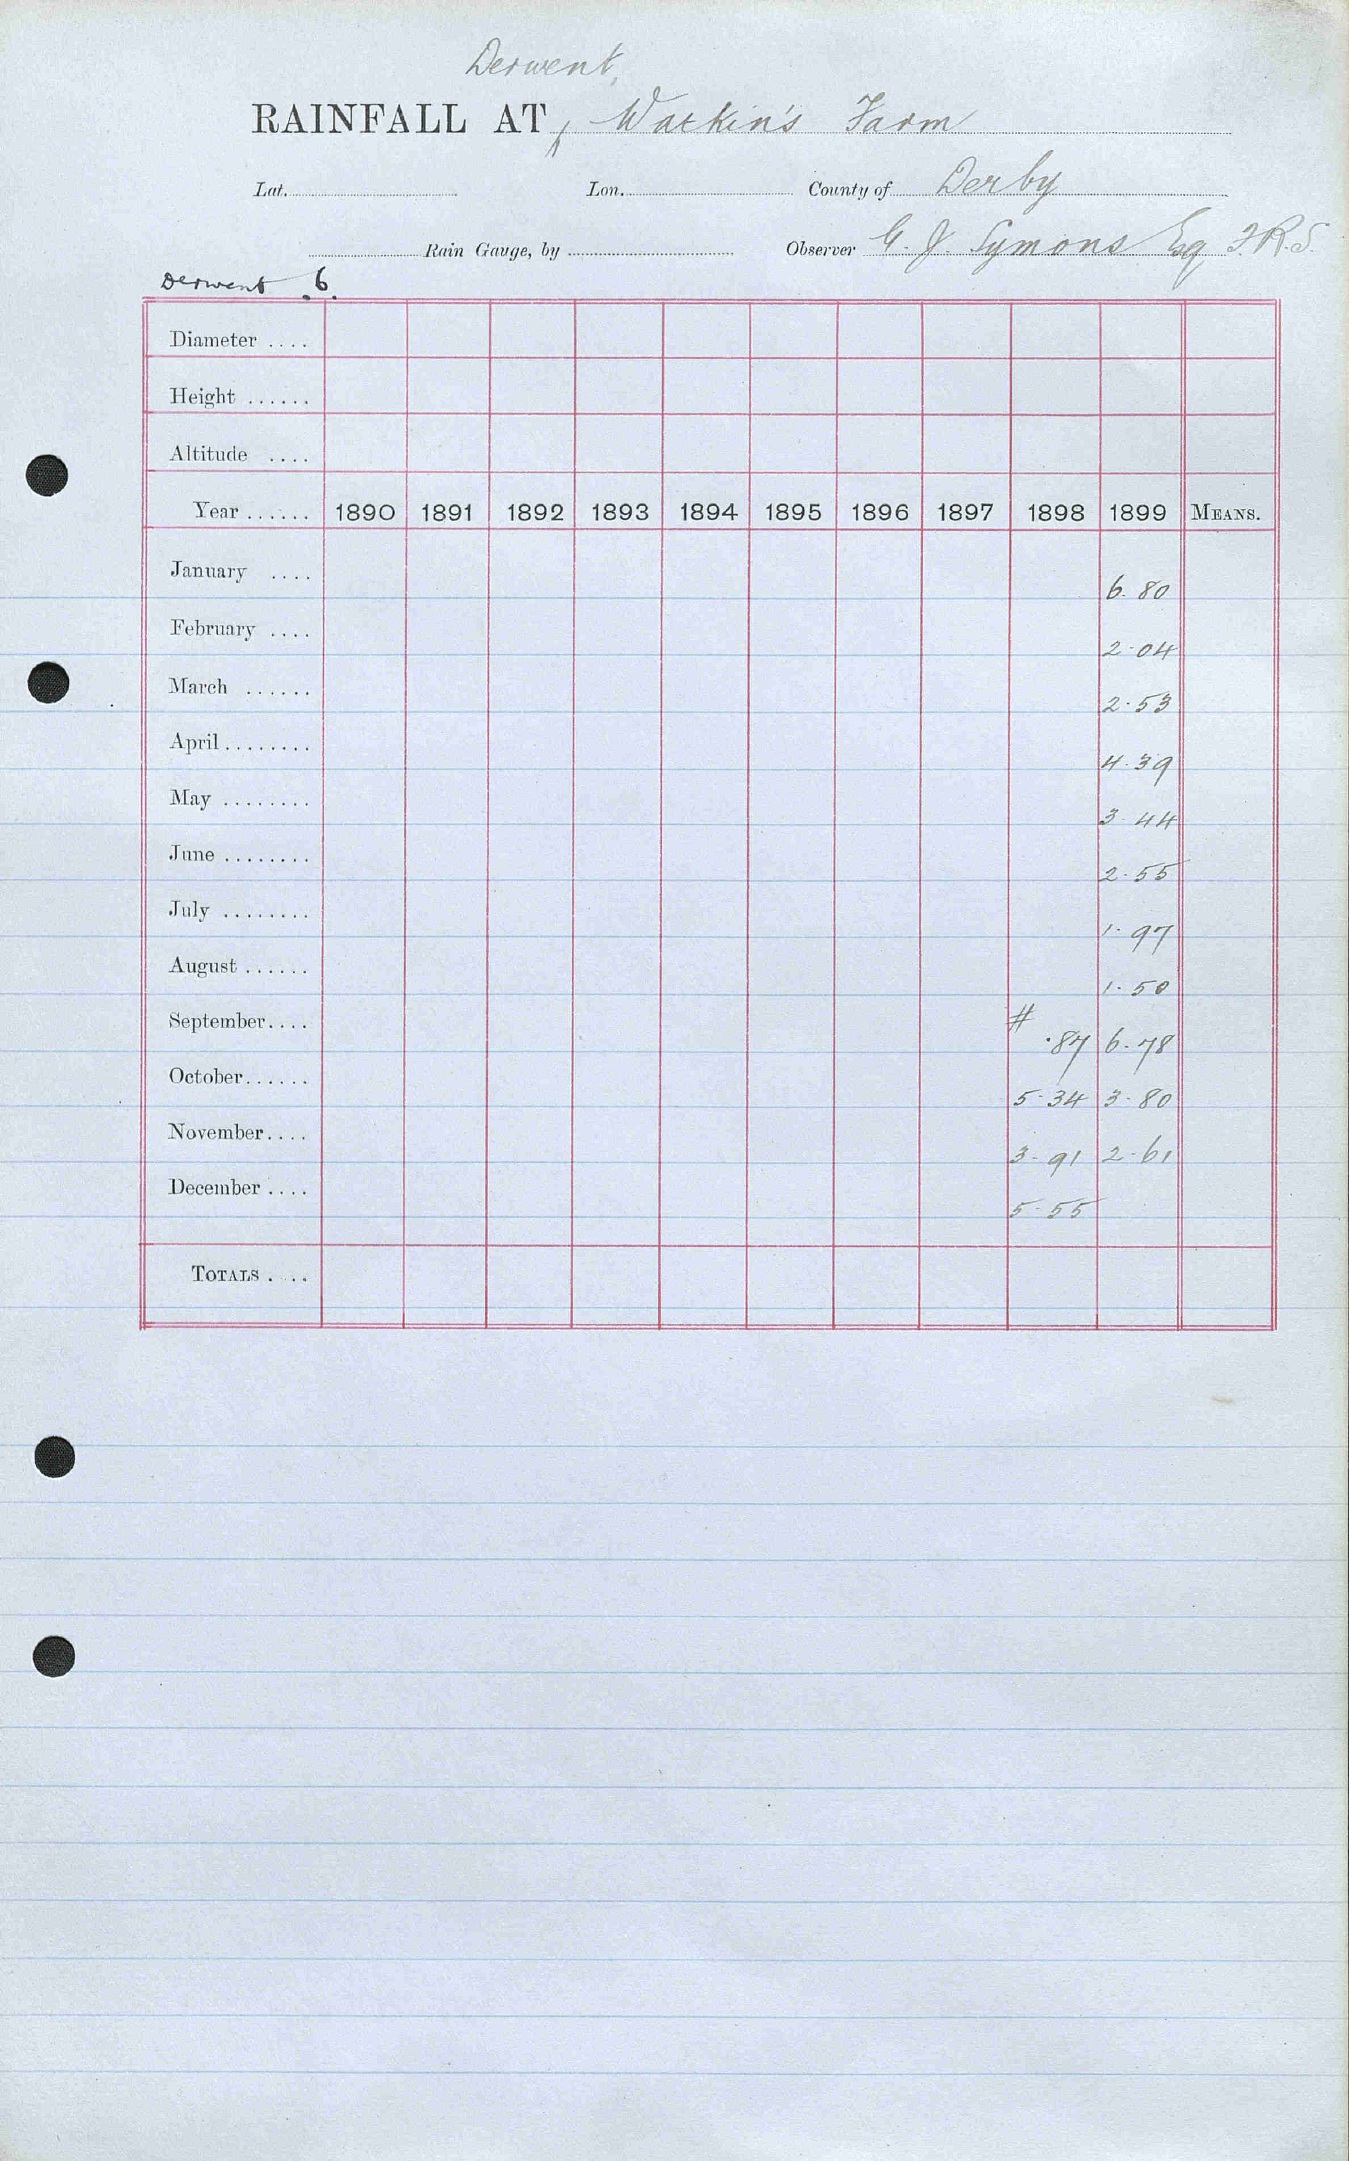 Derwent,
RAINFALL AT Watkin's Farm
Lat. Lon. County of Derby
Rain Gauge, by Observer G. J. Symons Esq F.R.S.
Derwent 6.
Diameter ....
Height ......
Altitude ....
Year ...... 1890 1891 1892 1893 1894 1895 1896 1897 1898 1899 MEANS.
January .... 6.80
February .... 2.04
March ...... 2.53
April ........ 4.39
May ........ 3.44
June ........ 2.55
July ........ 1.97
August ...... 1.50
September.... # .87 6.78
October...... 5.34 3.80
November.... 3.91 2.61
December .... 5.55
TOTALS ....